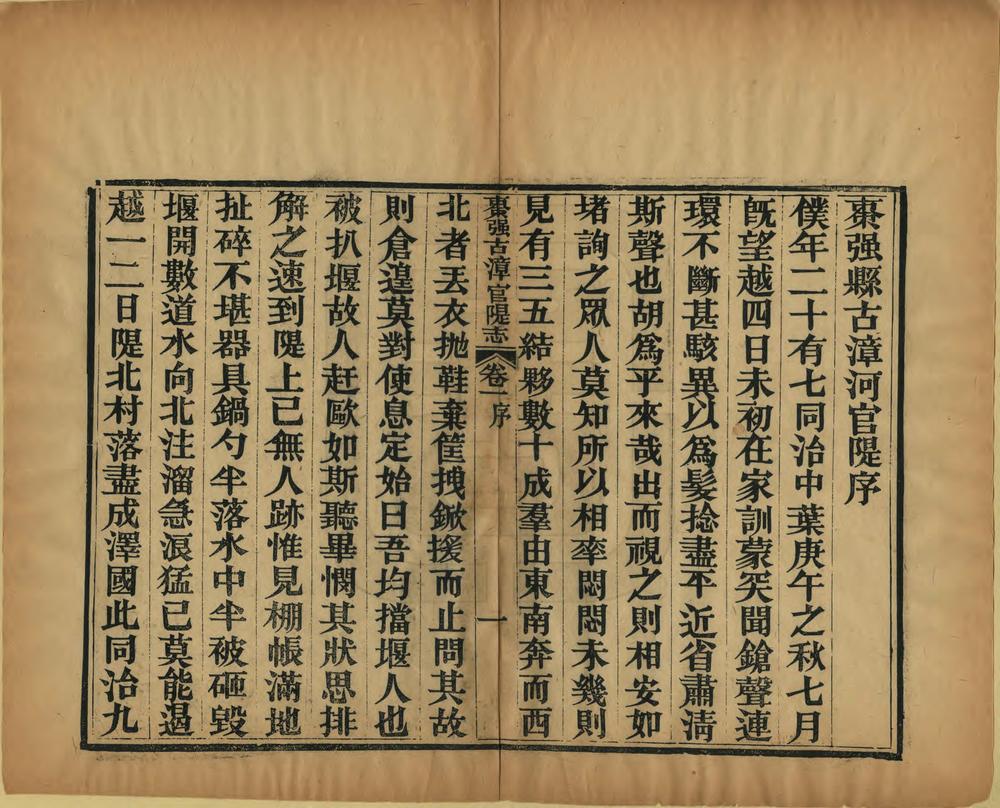 棗强縣古漳河官隄序
僕年二十有七同治中葉庚午之秋七月
旣望越四日未初在家訓蒙突聞鎗聲連
環不斷甚駭異以爲髮捻盡平近省肅淸
斯聲也胡爲乎來哉出而視之則相安如
堵詢之眾人莫知所以相率悶悶未幾則
見有三五結夥數十成羣由東南奔而西
棗强古漳官隄志 卷一序 一
北者丟衣抛鞋棄筐拽鍁援而止問其故
則倉遑莫對使息定始曰吾均擋堰人也
被扒堰故人赶歐如斯聽畢憫其狀思排
解之速到隄上已無人跡惟見棚帳滿地
扯碎不堪器具鍋勺半落水中半被砸毀
堰開數道水向北注溜急浪猛已莫能遏
越一二日隄北村落盡成澤國此同治九